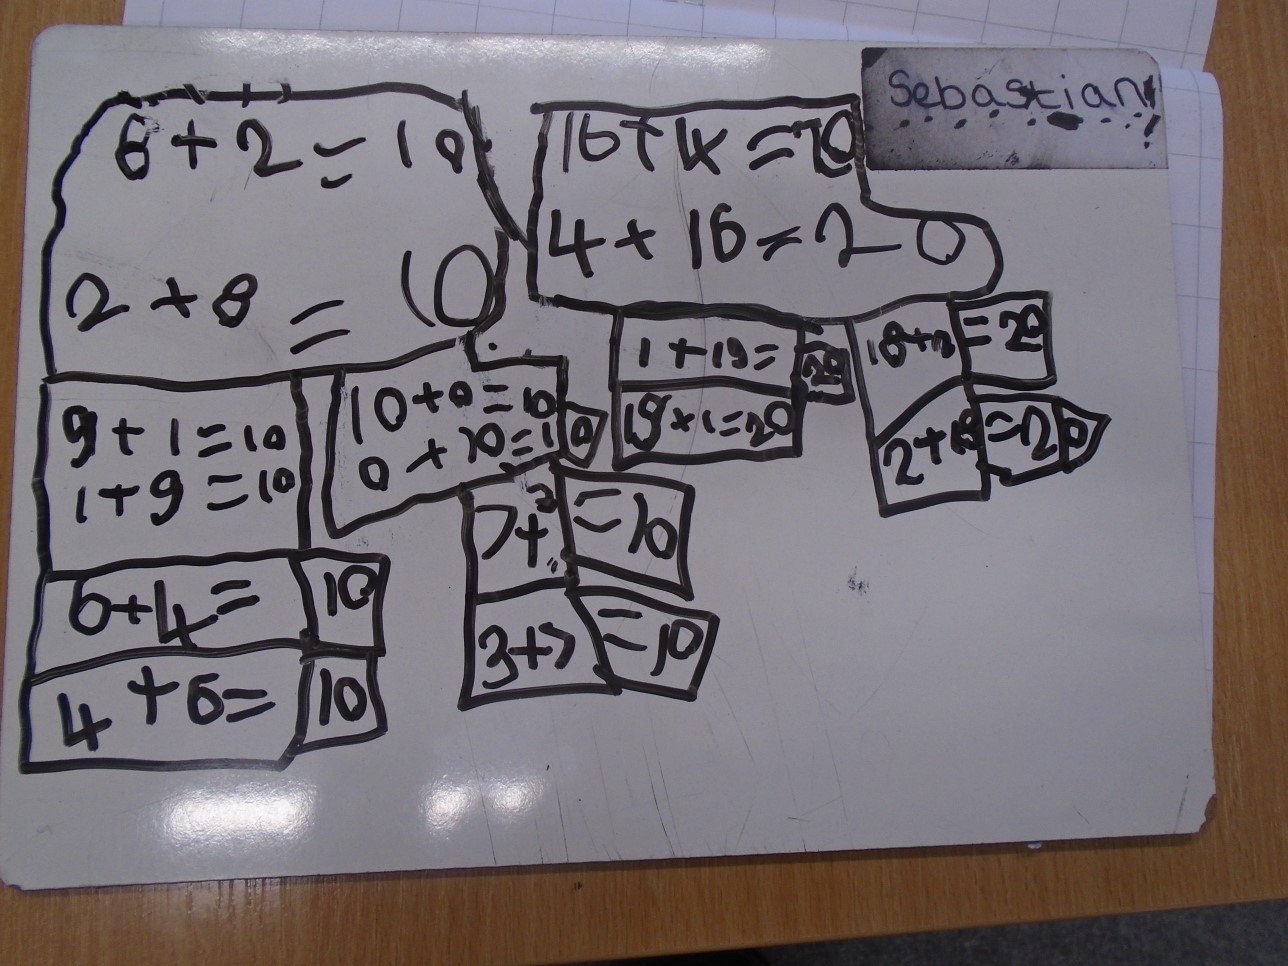 Sebastian!
6+2=10
2+8=10
9+1=10
1+9=10
6+4=10
4+6=10
10+0=10
0+10=10
7+3=10
3+7=10
16+4=20
4+16=20
1+19=20
19+1=20
18+2=20
2+18=20